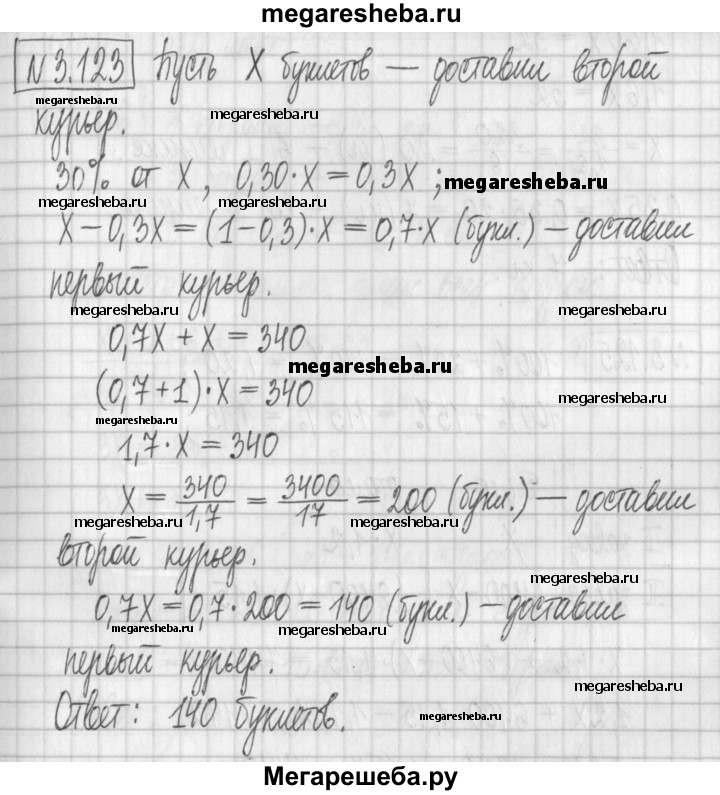 megaresheba.ru
N 3.123 Пусть X буклетов — доставил второй
megaresheba.ru megaresheba.ru
курьер.
30% от X, 0,30·X = 0,3X; megaresheba.ru
megaresheba.ru megaresheba.ru
X − 0,3X = (1−0,3)·X = 0,7·X (букл.) — доставил
первый курьер.
megaresheba.ru megaresheba.ru
0,7X + X = 340
megaresheba.ru
(0,7+1)·X = 340
megaresheba.ru
megaresheba.ru
1,7·X = 340
X = 340/1,7 = 3400/17 = 200 (букл.) — доставил
megaresheba.ru megaresheba.ru megaresheba.ru
второй курьер.
megaresheba.ru
0,7X = 0,7·200 = 140 (букл.) — доставил
megaresheba.ru megaresheba.ru
первый курьер.
megaresheba.ru
Ответ: 140 буклетов.
megaresheba.ru
Мегарешеба.ру